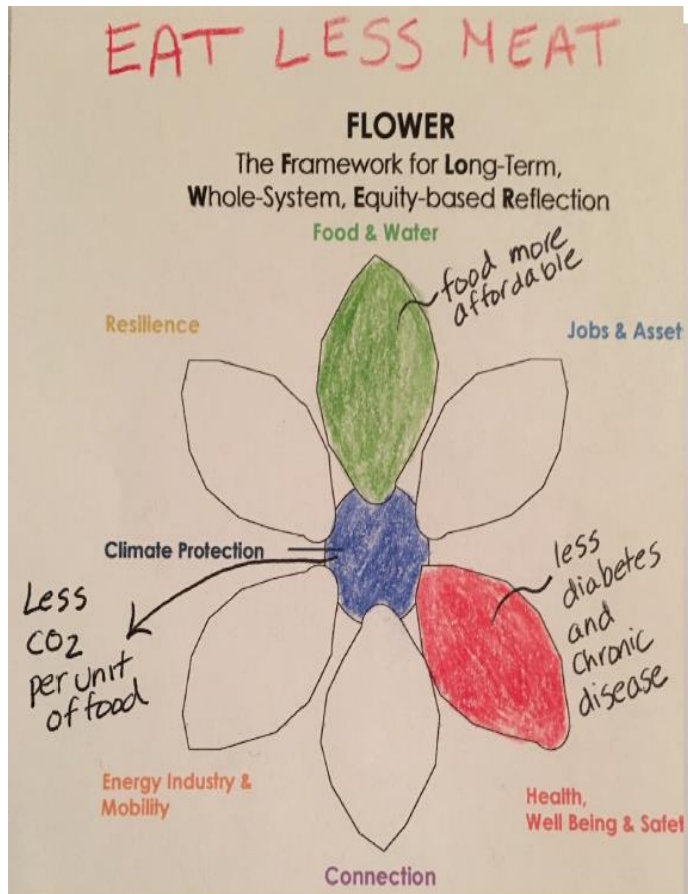 EAT LESS MEAT
FLOWER
The Framework for Long-Term,
Whole-System, Equity-based Reflection
Food & Water
food more
affordable
Resilience
Jobs & Asset
Climate Protection
Less
CO2
per unit
of food
less
diabetes
and
chronic
disease
Energy Industry &
Mobility
Health,
Well Being & Safet
Connection